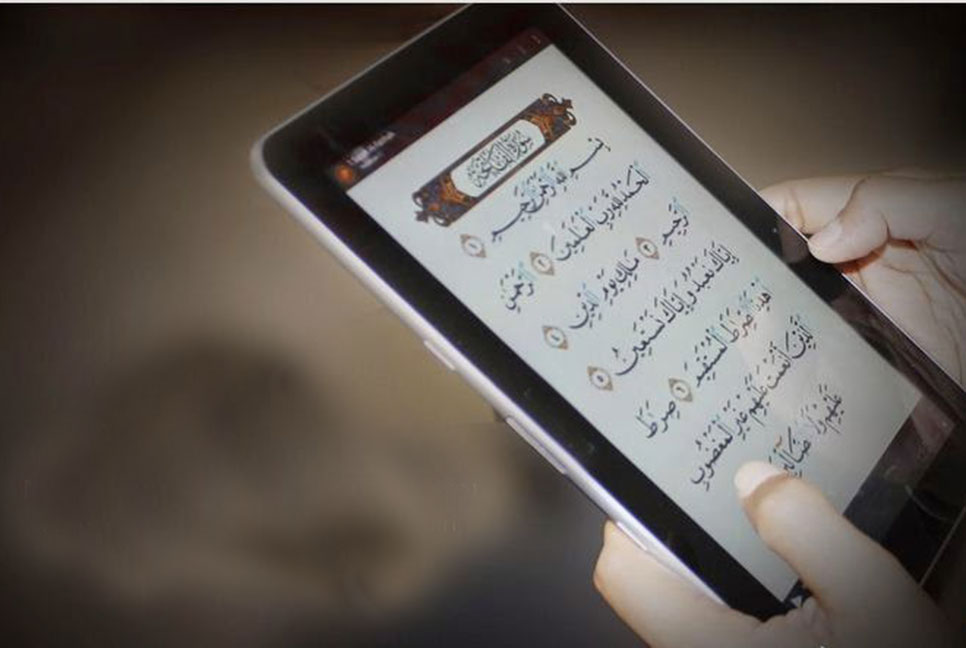 سورة الفاتحة
بِسْمِ اللَّهِ الرَّحْمَنِ الرَّحِيمِ ١
الْحَمْدُ لِلَّهِ رَبِّ الْعَالَمِينَ ٢ الرَّحْمَنِ
الرَّحِيمِ ٣ مَالِكِ يَوْمِ الدِّينِ ٤
إِيَّاكَ نَعْبُدُ وَإِيَّاكَ نَسْتَعِينُ ٥
اهْدِنَا الصِّرَاطَ الْمُسْتَقِيمَ ٦ صِرَاطَ
الَّذِينَ أَنْعَمْتَ عَلَيْهِمْ غَيْرِ الْمَغْضُوبِ
عَلَيْهِمْ وَلَا الضَّالِّينَ